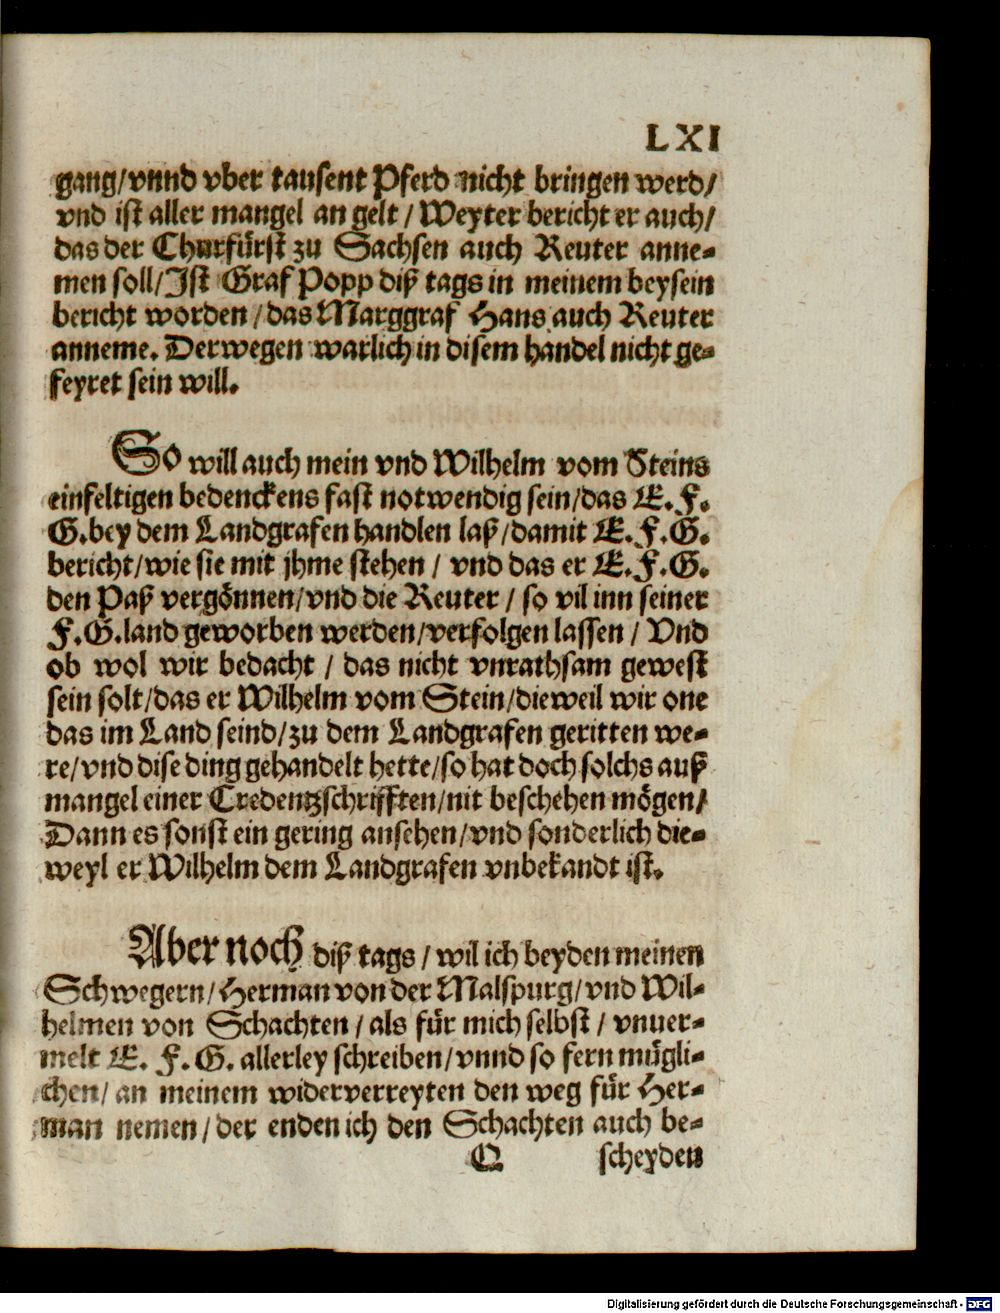 LXI
gang/vnnd vber tausent Pferd nicht bringen werd/
vnd ist aller mangel an gelt / Weyter bericht er auch/
das der Churfürst zu Sachsen auch Reuter anne-
men soll/Ist Graf Popp diß tags in meinem beysein
bericht worden / das Marggraf Hans auch Reuter
anneme. Derwegen warlich in disem handel nicht ge-
feyret sein will.
So will auch mein vnd Wilhelm vom Steins
einfeltigen bedenckens fast notwendig sein/das E. F.
G. bey dem Landgrafen handlen laß/damit E. F. G.
bericht/wie sie mit jhme stehen / vnd das er E. F. G.
den Paß vergönnen/vnd die Reuter / so vil inn seiner
F. G. land geworben werden/verfolgen lassen / Vnd
ob wol wir bedacht / das nicht vnrathsam gewest
sein solt/das er Wilhelm vom Stein/dieweil wir one
das im Land seind/zu dem Landgrafen geritten we-
re/vnd dise ding gehandelt hette/so hat doch solchs auß
mangel einer Credentzschrifften/nit beschehen mögen/
Dann es sonst ein gering ansehen/vnd sonderlich die-
weyl er Wilhelm dem Landgrafen vnbekandt ist.
Aber noch diß tags / wil ich beyden meinen
Schwegern/Herman von der Malspurg/vnd Wil-
helmen von Schachten / als für mich selbst / vnuer-
melt E. F. G. allerley schreiben/vnnd so fern mügli-
chen/ an meinem widerverreyten den weg für Her-
man nemen / der enden ich den Schachten auch be-
Q scheyden
Digitalisierung gefördert durch die Deutsche Forschungsgemeinschaft - DFG